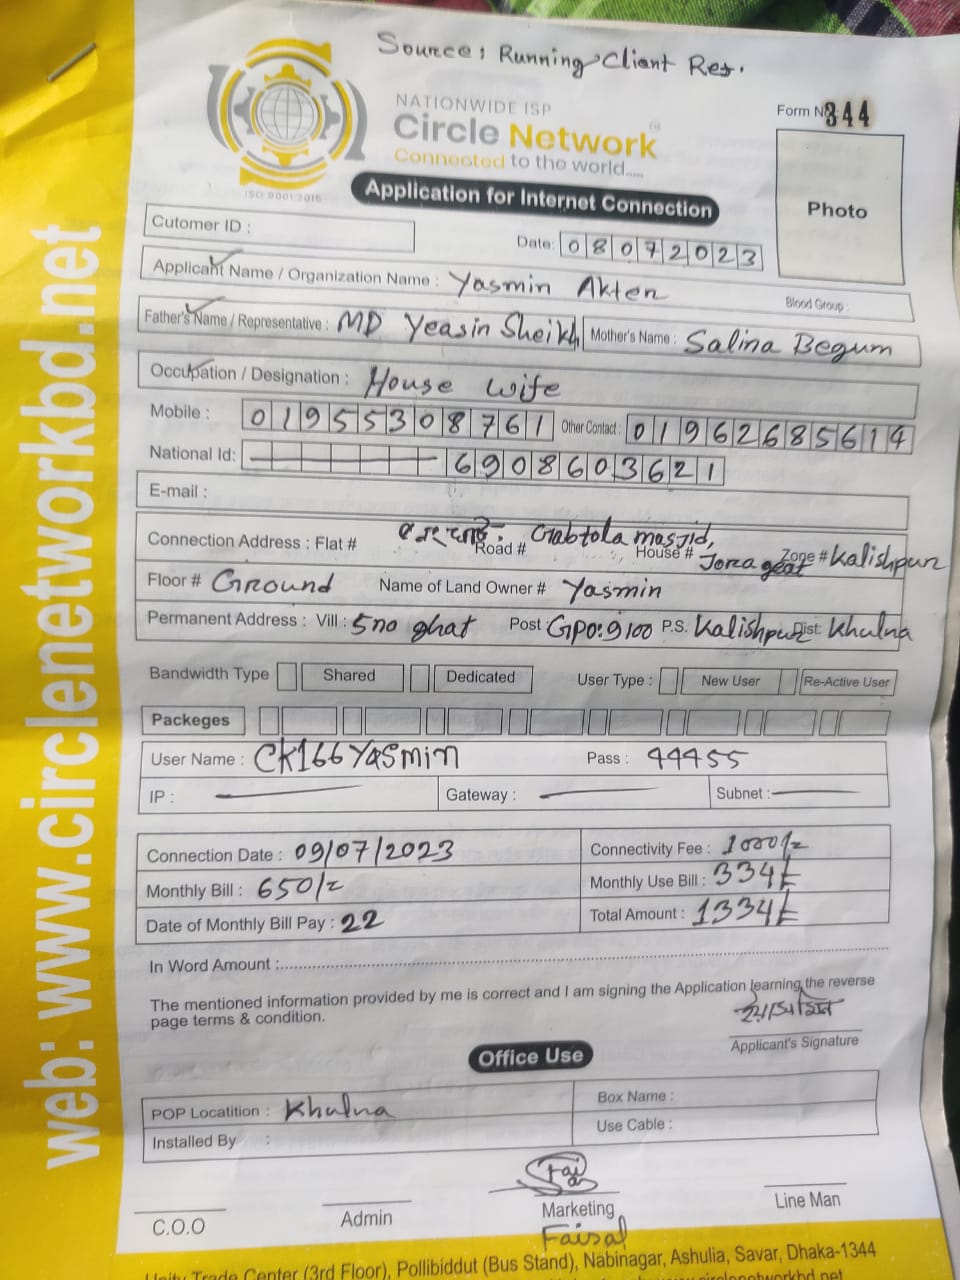 Source: Running Client Ref.
NATIONWIDE ISP
Circle Network
Connected to the world.....
ISO 9001:2015
Form No 344
Application for Internet Connection
Photo
Cutomer ID :
Date: 08072023
Applicant Name / Organization Name : Yasmin Akter
Blood Group :
Father's Name / Representative : MD Yeasin Sheikh Mother's Name : Salina Begum
Occupation / Designation : House wife
Mobile : 01955308761 Other Contact : 01962685614
National Id: 6908603621
E-mail :
Connection Address : Flat # Road # Gabtola masjid, House # Jora geat Zone # Kalishpur
Floor # Ground Name of Land Owner # Yasmin
Permanent Address : Vill : 5 no ghat Post GPO:9100 P.S. Kalishpur Dist: Khulna
Bandwidth Type Shared Dedicated User Type : New User Re-Active User
Packeges
User Name : CK166Yasmin Pass : 44455
IP : Gateway : Subnet :
Connection Date : 09/07/2023 Connectivity Fee : 1000/=
Monthly Bill : 650/= Monthly Use Bill : 334/=
Date of Monthly Bill Pay : 22 Total Amount : 1334/=
In Word Amount :
The mentioned information provided by me is correct and I am signing the Application learning the reverse
page terms & condition.
Applicant's Signature
Office Use
POP Locatition : Khulna Box Name :
Installed By : Use Cable :
C.O.O Admin Marketing Line Man
Faisal
Trade Center (3rd Floor), Pollibiddut (Bus Stand), Nabinagar, Ashulia, Savar, Dhaka-1344
web: www.circlenetworkbd.net